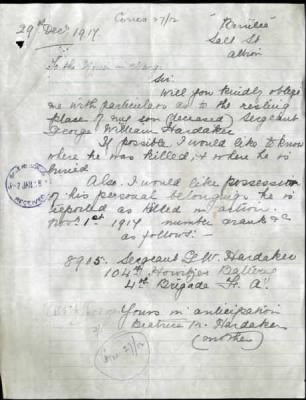 29th Dec. 1917
Salt St
Albion
To the Officer in charge
Sir
Will you kindly oblige
me with particulars as to the resting
place of my son (deceased) Sergeant
George William Hardaker
If possible I would like to know
where he was killed, & where he is
buried
Also I would like possession
of his personal belongings he is
reported as killed in action
Nov 21st 1917 number & rank &c
as follows:-
8915. Sergeant G. W. Hardaker
104th Howitzer Battery
4th Brigade F. A.
Yours in anticipation
Beatrice M. Hardaker
(mother)